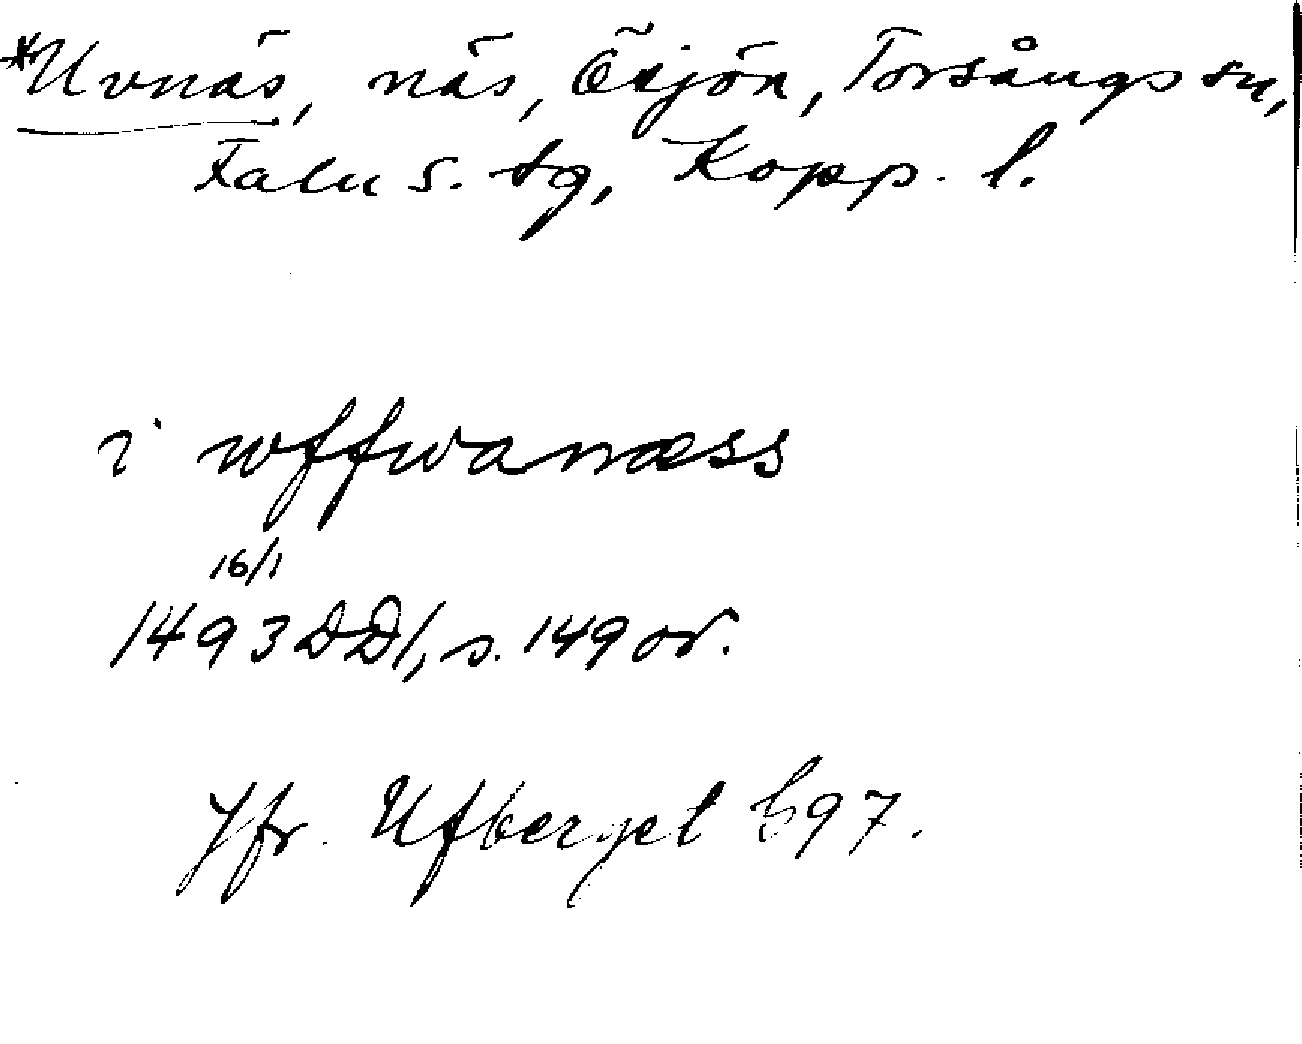 *Uvnäs, näs, Öxjön, Torsångs sn,
Falu s. tg, Kopp. l.
i wffwanæss
16/1
1493 DD1, s. 149 or.
Jfr. Ufberget b97.